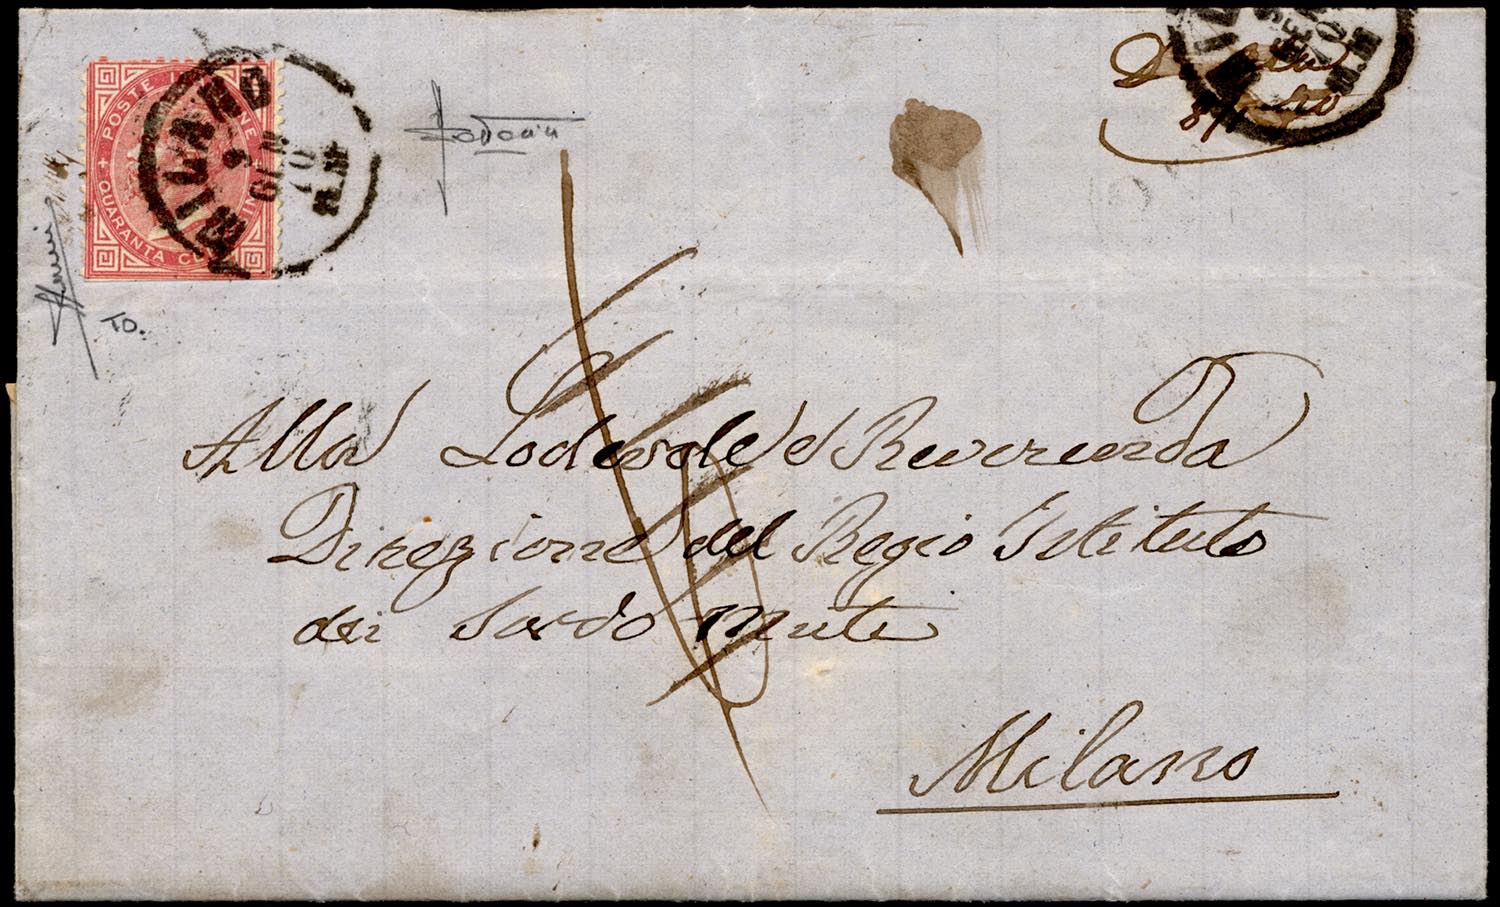 POSTE IT NE
QUARANTA CE IM
MILANO
9
GIU
70
10 M
D
8/
TO.
Alla Lodevole e Reverenda
Direzione del Regio Istituto
dei Sordo Muti
Milano